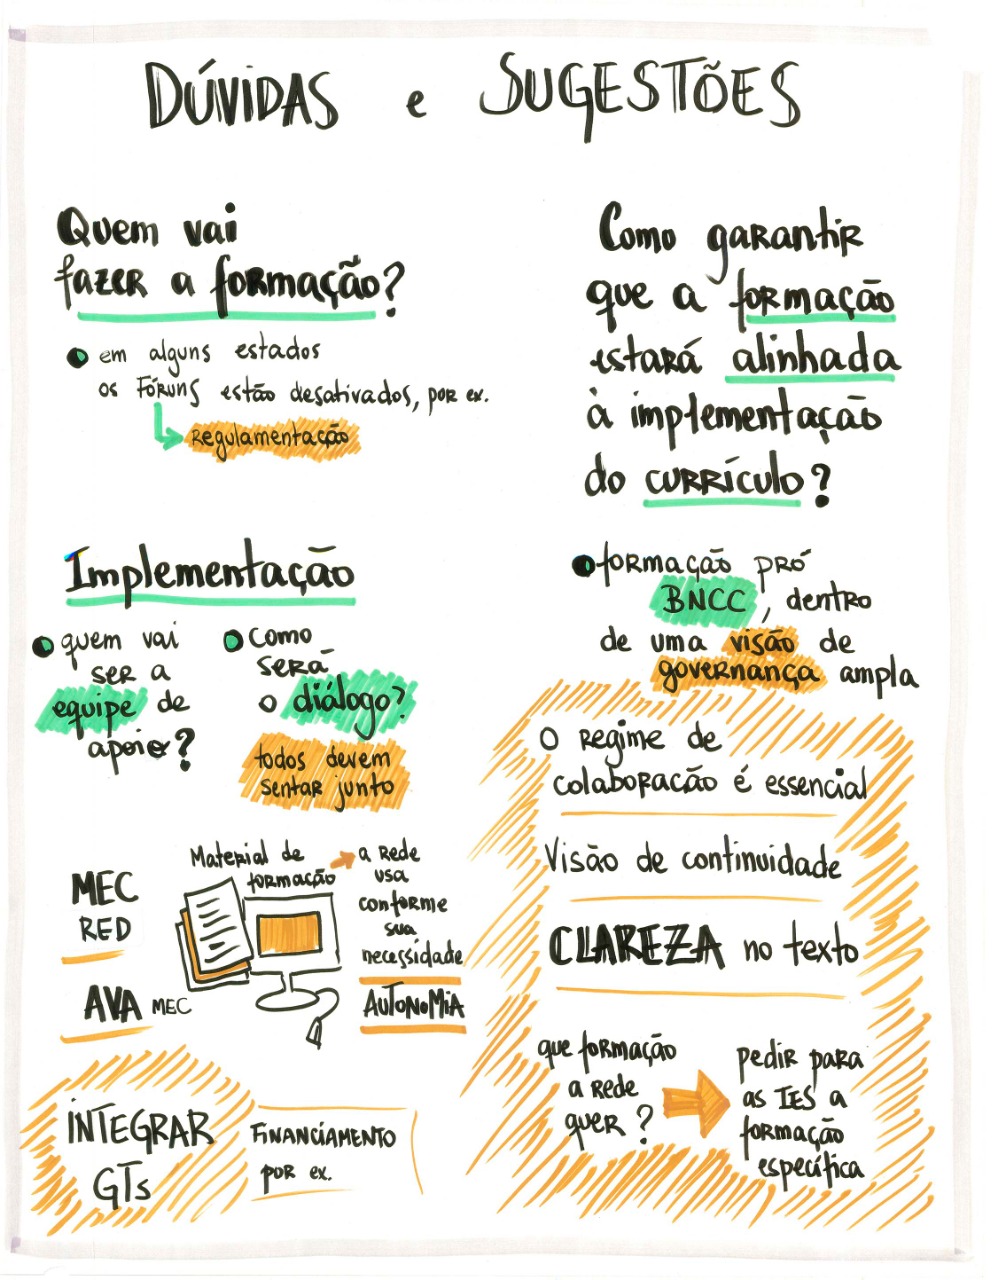 DÚVIDAS e SUGESTÕES
Quem vai
fazer a formação?
em alguns estados
os Fóruns estão desativados, por ex.
regulamentação
Como garantir
que a formação
estará alinhada
à implementação
do currículo?
formação pró
BNCC, dentro
de uma visão de
governança ampla
Implementação
quem vai
ser a
equipe de
apoio?
como
será
o diálogo?
todos devem
sentar junto
O regime de
colaboração é essencial
Visão de continuidade
CLAREZA no texto
que formação
a rede
quer?
pedir para
as IES a
formação
específica
MEC
RED
AVA MEC
Material de
formação
a rede
usa
conforme
sua
necessidade
AUTONOMIA
INTEGRAR
GTs
FINANCIAMENTO
por ex.